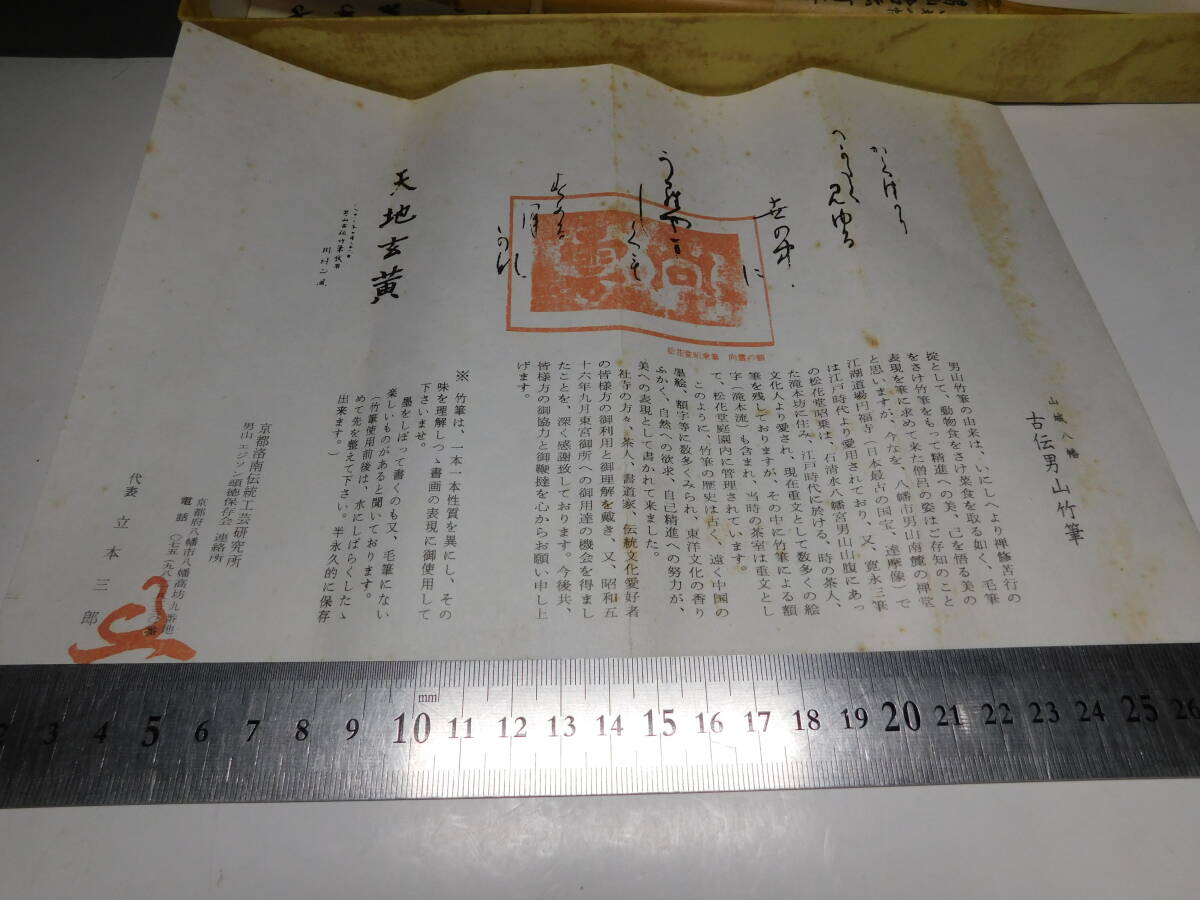 山城八幡
古伝男山竹筆
男山竹筆の由来は、いにしへより禅修苦行の
掟として、動物食をさけ菜食を取る如く、毛筆
をさけ竹筆をもって精進への美、己を悟る美の
表現を筆に求めて来た僧呂の姿はご存知のこと
と思いますが、今なを、八幡市男山南麓の禅堂
江湖道場円福寺(日本最古の国宝、達摩像)で
は江戸時代より愛用されており、又、寛永三筆
の松花堂昭乗は、石清水八幡宮男山山腹にあっ
た滝本坊に住み、江戸時代に於ける、時の茶人、
文化人より愛され、現在重文として数多くの絵
筆を残しておりますが、その中に竹筆による額
字(滝本流)も含まれ、当時の茶室は重文とし
て、松花堂庭園内に管理されています。
このように、竹筆の歴史は古く、遠く中国の
墨絵、額字等に数多くみられ、東洋文化の香り
ふかく、自然への欲求、自己精進への努力が、
美への表現として書かれて来ました。
社寺の方々、茶人、書道家、伝統文化愛好者
の皆様方の御利用と御理解を戴き、又、昭和五
十六年九月東宮御所への御用達の機会を得まし
たことを、深く感謝致しております。今後共、
皆様方の御協力と御鞭撻を心からお願い申し上
げます。
※ 竹筆は、一本一本性質を異にし、その
味を理解しつゝ書画の表現に御使用して
下さいませ。
墨をしぼって書くのも又、毛筆にない
楽しいものがあると聞いております。
(竹筆使用前後は、水にしばらくしたゝ
めて先を整えて下さい。半永久的に保存
出来ます。)
京都洛南伝統工芸研究所
男山エジソン顕徳保存会 連絡所
京都府八幡市八幡高坊九番地
電話 〇七五-九八
代表 立本三郎
松花堂昭乗筆 尚雲の額
尚雲
見ゆる
に
天地玄黄
2 3 4 5 6 7 8 9 10 11 12 13 14 15 16 17 18 19 20 21 22 23 24 25 26
mm